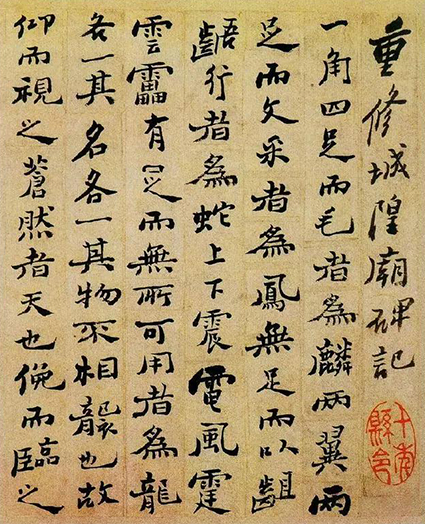 重修城隍廟碑記
一角四足而毛者為麟兩翼兩
足而文采者為鳳無足而以齟
齬行者為蛇上下震電風霆
雲靁有足而無所可用者為龍
各一其名各一其物不相襲也故
仰而視之蒼然者天也俛而臨之
十年縣令